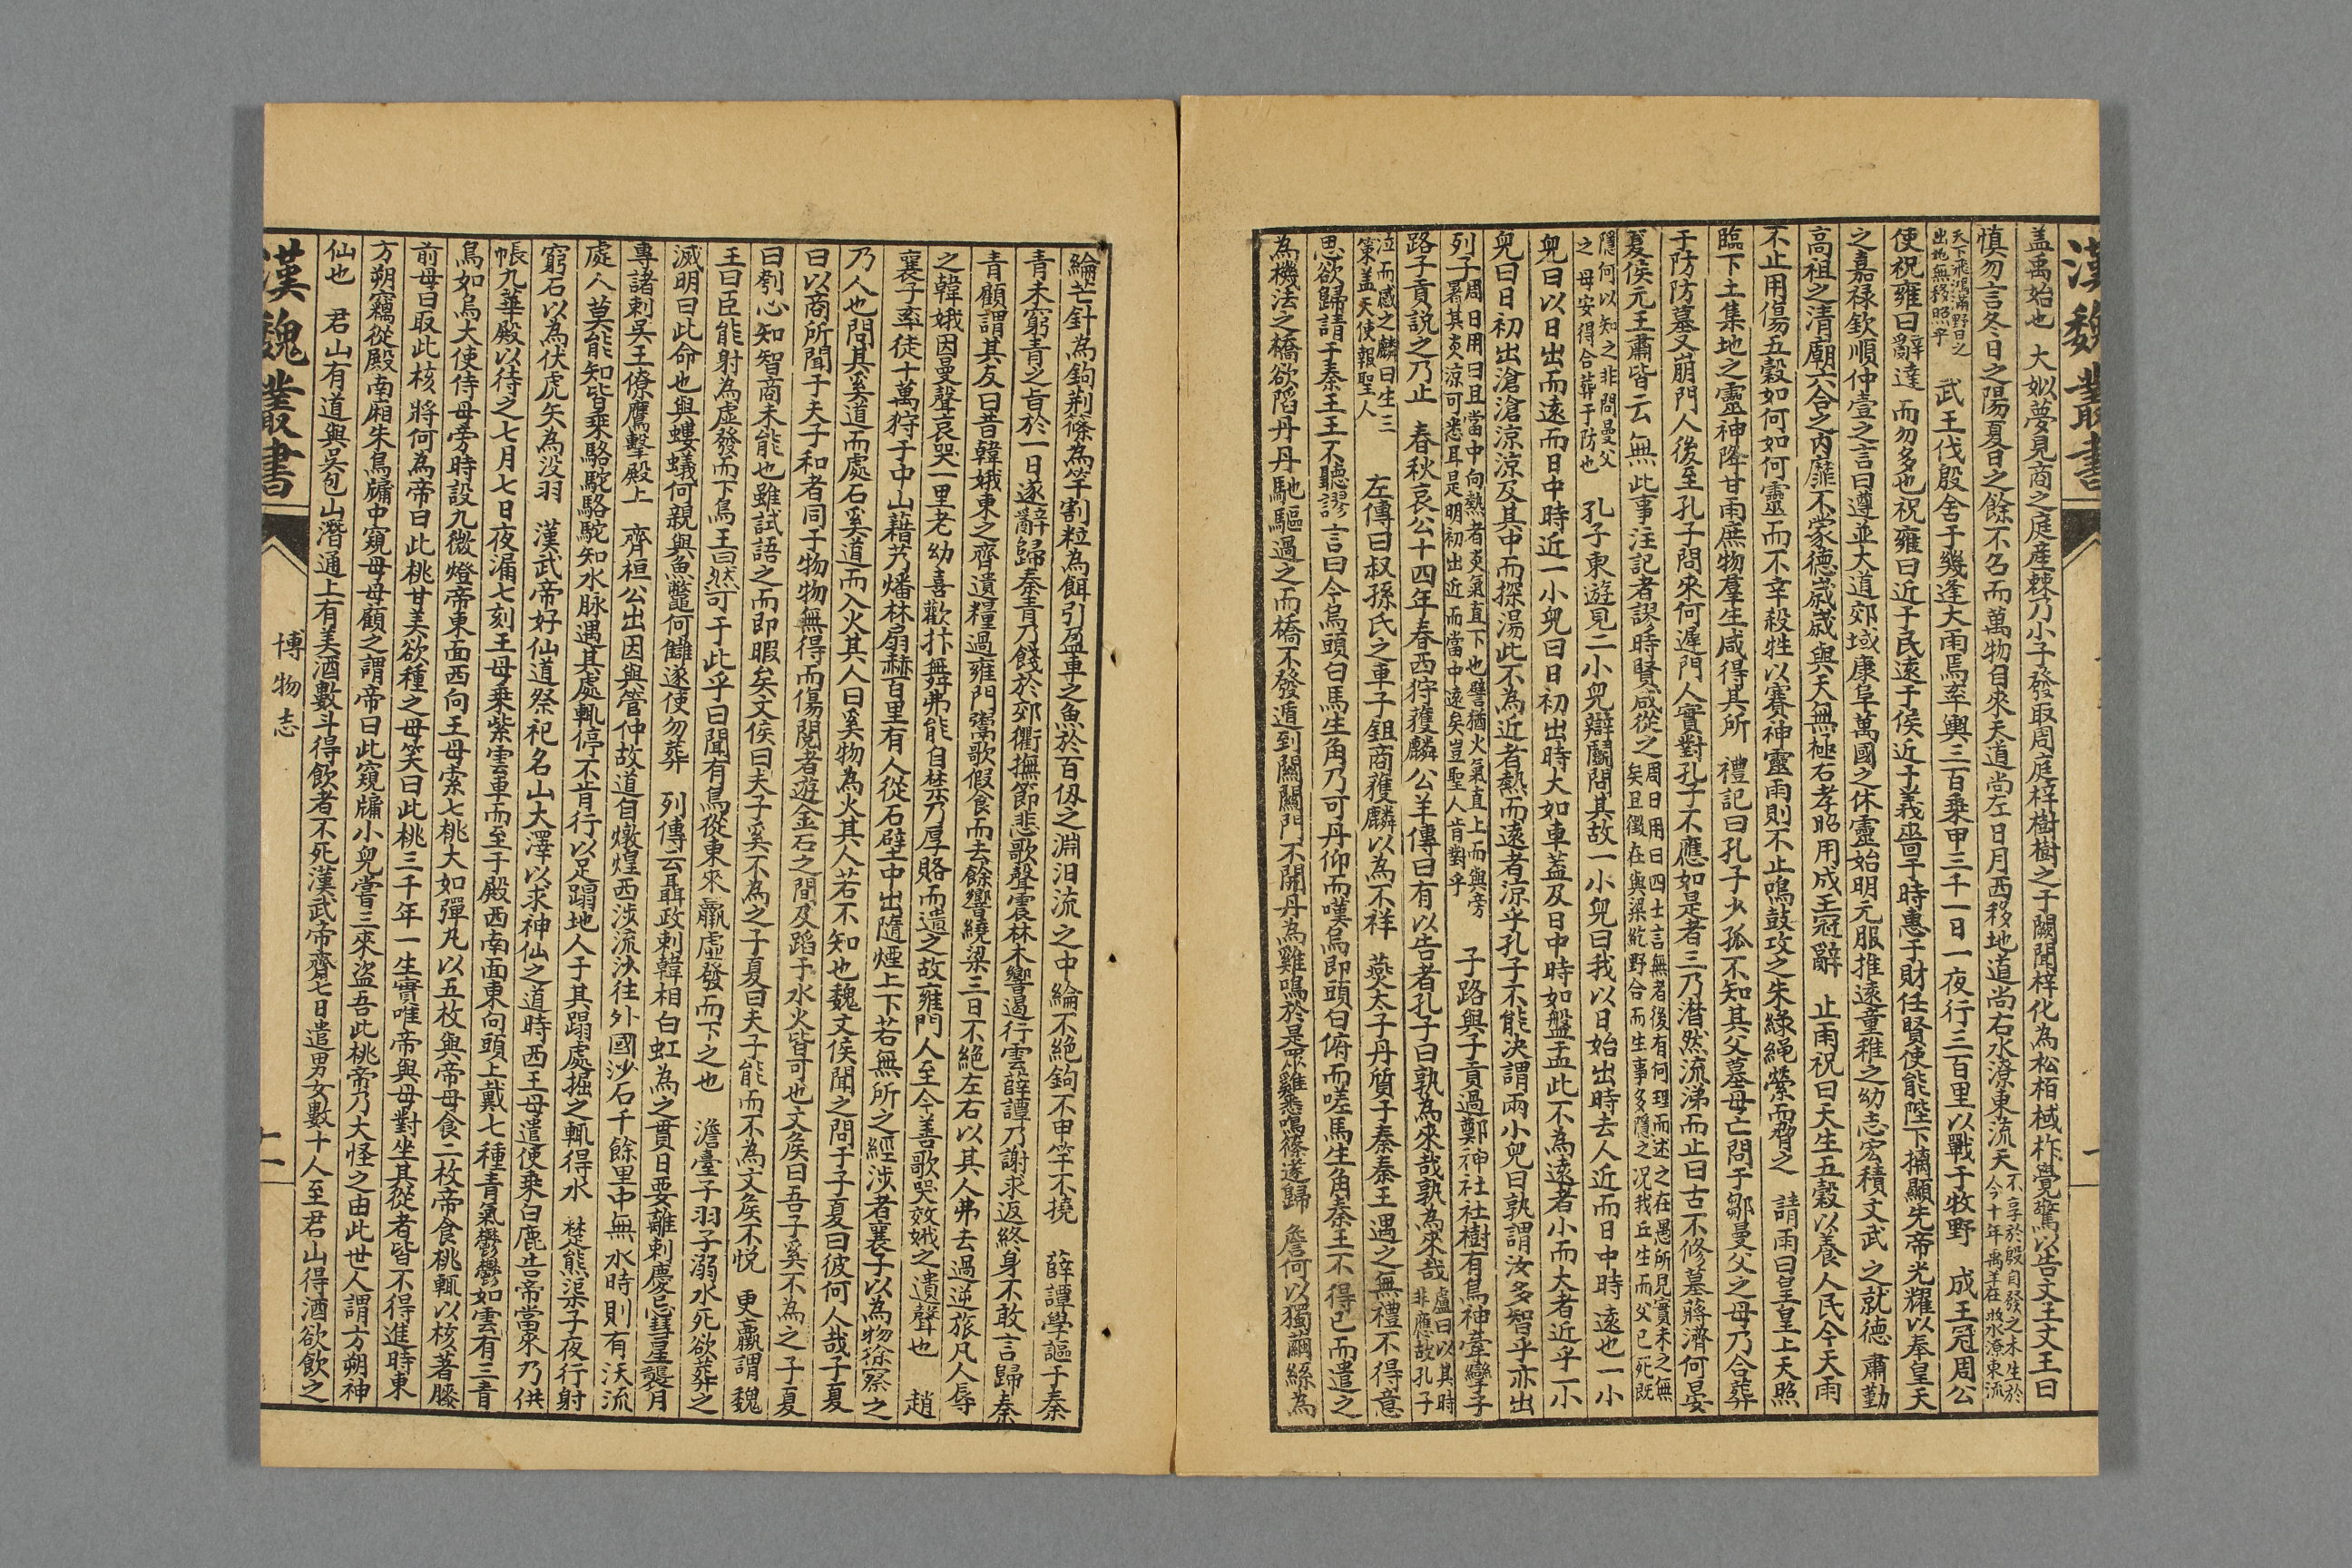 漢魏叢書
盖禹始也　大姒夢見商之庭產棘乃小子發取周庭梓樹樹之于闕間梓化為松栢棫柞覺驚以告文王文王曰
慎勿言冬日之陽夏日之餘不召而萬物自來天道尚左日月西移地道尚右水潦東流天不享於殷自發之未生於今十年禹羊在牧水潦東流
天下飛鴻滿野日之出地無移照乎　武王伐殷舍于幾逢大雨焉率輿三百乘甲三千一日一夜行三百里以戰于牧野　成王冠周公
使祝雍曰辭達而勿多也祝雍曰近于民遠于侯近于義嗇于時惠于財任賢使能陛下摛顯先帝光耀以奉皇天
之嘉祿欽順仲壹之言曰遵並大道郊域康阜萬國之休靈始明元服推遠童稚之幼志宏積文武之就德肅勤
高祖之清廟六合之內靡不蒙德歲歲與天無極右孝昭用成王冠辭　止雨祝曰天生五穀以養人民今天雨
不止用傷五穀如何如何靈而不幸殺牲以賽神靈雨則不止鳴鼓攻之朱綠繩縈而脅之　請雨曰皇皇上天照
臨下土集地之靈神降甘雨庶物羣生咸得其所　禮記曰孔子少孤不知其父墓母亡問于鄒曼父之母乃合葬
于防防墓又崩門人後至孔子問來何遲門人實對孔子不應如是者三乃潸然流涕而止曰古不修墓蔣濟何晏
夏侯元王肅皆云無此事注記者謬時賢咸從之周日用曰四士言無者後有何理而述之在愚所見實未之無矣且徵在與梁紇野合而生事多隱之况我丘生而父已死既
隱何以知之非問曼父之母安得合葬于防也　孔子東遊見二小兒辯鬬問其故一小兒曰我以日始出時去人近而日中時遠也一小
兒曰以日出而遠而日中時近一小兒曰日初出時大如車蓋及日中時如盤盂此不為遠者小而大者近乎一小
兒曰日初出滄滄涼涼及其中而探湯此不為近者熱而遠者涼乎孔子不能决謂兩小兒曰孰謂汝多智乎亦出
列子周日用曰且當中向熱者炎氣直下也譬猶火氣直上而與旁暑其炎涼可悉耳是明初出近而當中遠矣豈聖人肯對乎　子路與子貢過鄭神社社樹有鳥神牽攣子
路子貢説之乃止　春秋哀公十四年春西狩獲麟公羊傳曰有以告者孔子曰孰為來哉孰為來哉盧曰以其時非應故孔子
泣而感之麟曰生三策盖天使報聖人　左傳曰叔孫氏之車子鉏商獲麟以為不祥　燕太子丹質于秦秦王遇之無禮不得意
思欲歸請于秦王王不聽謬言曰令烏頭白馬生角乃可丹仰而嘆烏即頭白俯而嗟馬生角秦王不得已而遣之
為機法之橋欲陷丹丹馳驅過之而橋不發遁到關關門不開丹為雞鳴於是眾雞悉鳴遂歸　詹何以獨繭絲為
綸芒針為鉤荆篠為竿割粒為餌引盈車之魚於百仭之淵汩流之中綸不絶鉤不申竿不撓　薛譚學謳于秦
青未窮青之旨於一日遂辭歸秦青乃餞於郊衢撫節悲歌聲震林木響遏行雲薛譚乃謝求返終身不敢言歸秦
青顧謂其友曰昔韓娥東之齊遺糧過雍門鬻歌假食而去餘響繞梁三日不絶左右以其人弗去過逆旅凡人辱
之韓娥因曼聲哀哭一里老幼喜歡抃舞弗能自禁乃厚賂而遣之故雍門人至今善歌哭效娥之遺聲也　趙
襄子率徒十萬狩于中山藉艿燔林扇赫百里有人從石壁中出隨煙上下若無所之經涉者襄子以為物徐察之
乃人也問其奚道而處石奚道而入火其人曰奚物為火其人若不知也魏文侯聞之問于子夏曰彼何人哉子夏
曰以商所聞于夫子和者同于物物無得而傷閱者遊金石之間及蹈于水火皆可也文侯曰吾子奚不為之子夏
曰刳心知智商未能也雖試語之而即暇矣文侯曰夫子奚不為之子夏曰夫子能而不為文侯不悦　更羸謂魏
王曰臣能射為虛發而下鳥王曰然可于此乎曰聞有鳥從東來羸虛發而下之也　澹臺子羽子溺水死欲葬之
滅明曰此命也與螻蟻何親與魚鼈何讎遂使勿葬　列傳云聶政刺韓相白虹為之貫日要離刺慶忌彗星襲月
專諸刺吳王僚鷹擊殿上　齊桓公出因與管仲故道自燉煌西涉流沙往外國沙石千餘里中無水時則有沃流
處人莫能知皆乘駱駝駱駝知水脉遇其處輒停不肯行以足蹋地人于其蹋處掘之輒得水　楚熊渠子夜行射
窮石以為伏虎矢為没羽　漢武帝好仙道祭祀名山大澤以求神仙之道時西王母遣使乘白鹿告帝當來乃供
帳九華殿以待之七月七日夜漏七刻王母乘紫雲車而至于殿西南面東向頭上戴七種青氣鬱鬱如雲有三青
鳥如烏大使侍母旁時設九微燈帝東面西向王母索七桃大如彈丸以五枚與帝母食二枚帝食桃輒以核著膝
前母曰取此核將何為帝曰此桃甘美欲種之母笑曰此桃三千年一生實唯帝與母對坐其從者皆不得進時東
方朔竊從殿南廂朱鳥牖中窺母母顧之謂帝曰此窺牖小兒嘗三來盜吾此桃帝乃大怪之由此世人謂方朔神
仙也　君山有道與吳包山潛通上有美酒數斗得飲者不死漢武帝齋七日遣男女數十人至君山得酒欲飲之
漢魏叢書
博物志